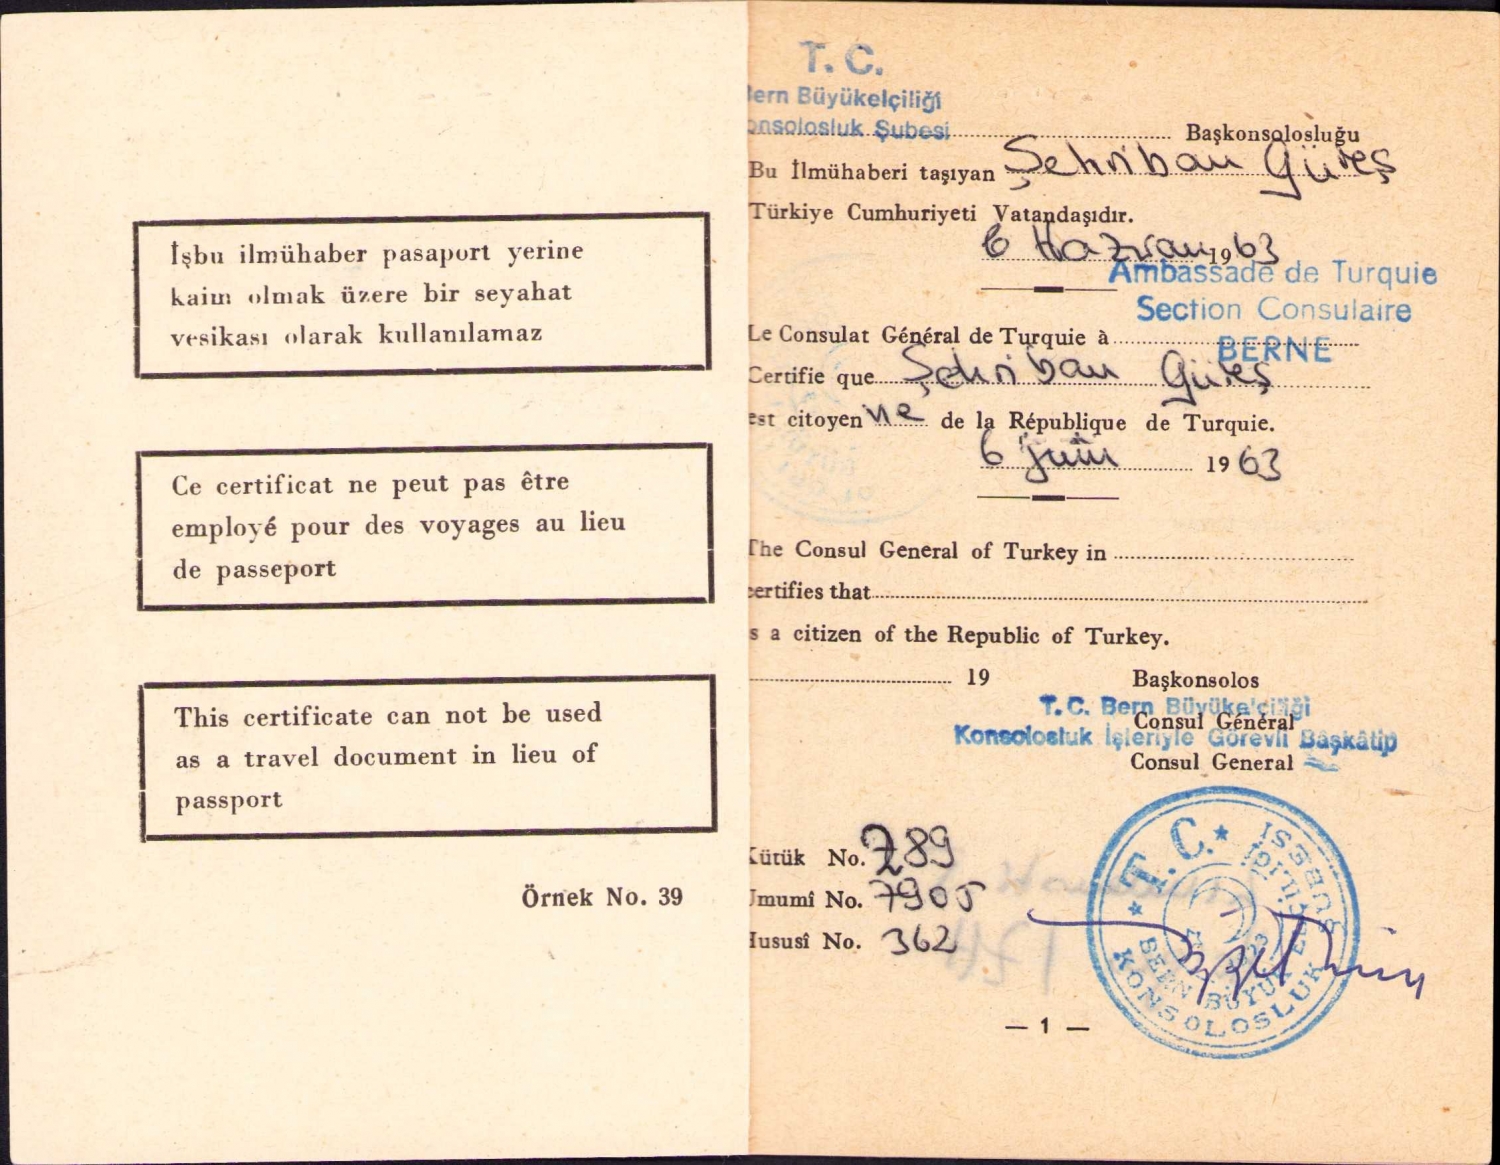 İşbu ilmühaber pasaport yerine
kaim olmak üzere bir seyahat
vesikası olarak kullanılamaz
Ce certificat ne peut pas être
employé pour des voyages au lieu
de passeport
This certificate can not be used
as a travel document in lieu of
passport
Örnek No. 39
T. C.
Bern Büyükelçiliği
Konsolosluk Şubesi
Başkonsolosluğu
Bu İlmühaberi taşıyan Şehriban Güneş
Türkiye Cumhuriyeti Vatandaşıdır.
6 Haziran 1963
Ambassade de Turquie
Section Consulaire
Le Consulat Général de Turquie à BERNE
Certifie que Şehriban Güneş
est citoyenne de la République de Turquie.
6 juin 1963
The Consul General of Turkey in
certifies that
is a citizen of the Republic of Turkey.
19
Başkonsolos
T. C. Bern Büyükelçiliği
Consul Général
Konsolosluk İşleriyle Görevli Başkâtip
Consul General
Kütük No. 789
Umumî No. 7905
Hususî No. 362
T. C.
BERN BÜYÜK ELÇİLİĞİ
KONSOLOSLUK ŞUBESİ
1923
— 1 —